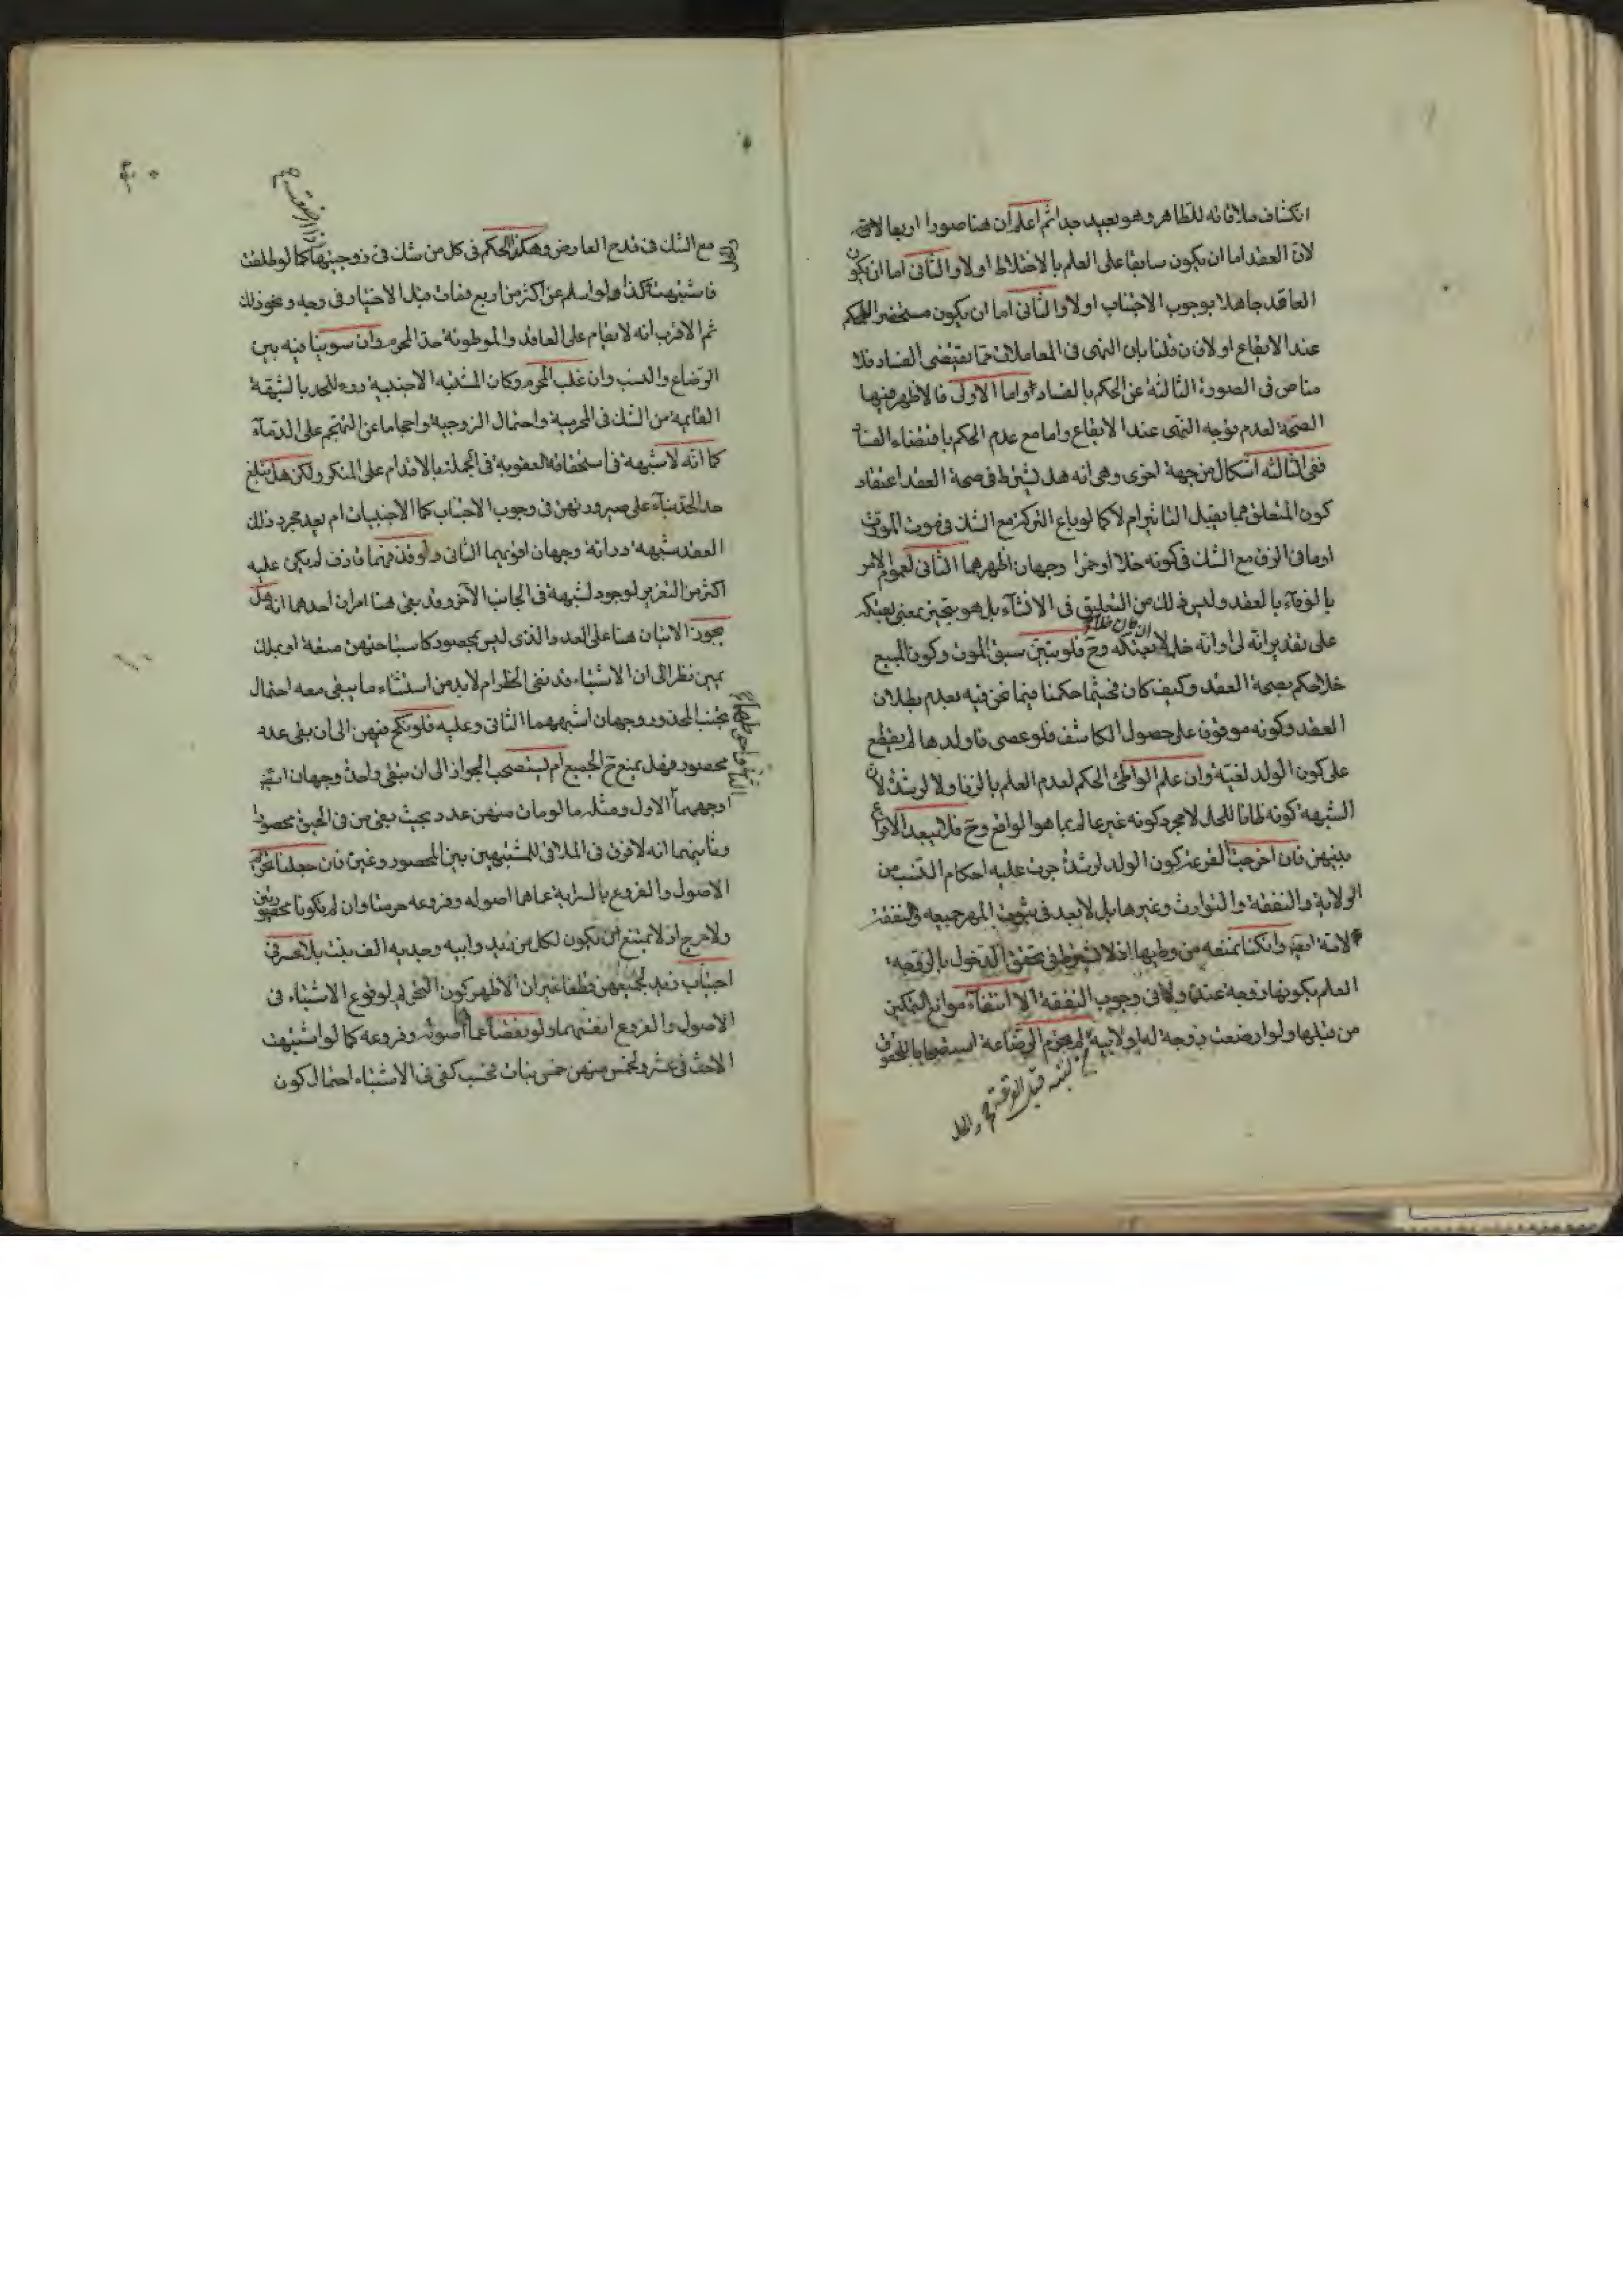 انكشاف ملاقاته للطاهر وهو بعيد جدا ثم اعلم ان هنا صورا اربعا
لان العقد اما ان يكون سابقا على العلم بالاختلاط اولا والثانى اما ان يكون
العاقد جاهلا بوجوب الاجتناب اولا والثانى اما ان يكون مستحضرا للحكم
عند الايقاع اولا فان قلنا بان النهى فى المعاملات مما يقتضى الفساد فلا
مناص فى الصورة الثالثة عن الحكم بالفساد واما الاولى فالاظهر فيها
الصحة لعدم توجه النهى عند الايقاع واما مع عدم الحكم باقتضاء الفساد
ففى الثالثه اشكال من جهة اخرى وهى انه هل يشترط فى صحة العقد اعتقاد
كون المتعلق مما يقبل التاثير ام لا كما لو باع التركة مع الشك فى موت المورث
او ما فى الزق مع الشك فى كونه خلا او خمرا وجهان اظهرهما الثانى لعموم الامر
بالوفاء بالعقد وليس ذلك من التعليق فى الانشاء بل هو تنجيز بمعنى بعتكه
على تقدير انه لى او انه خل لا بعتكه ان كان خلا وح فلو تبين سبق الموت وكون المبيع
خلا حكم بصحة العقد وكيف كان فحيثما حكمنا فيما نحن فيه بعدم بطلان
العقد وكونه موقوفا على حصول الكاشف فلو عصى فاولدها لم يقطع
على كون الولد لغيّة وان علم الواطئ الحكم لعدم العلم بالزنا ولا لرشدة لان
الشبهة كونه ظانا للحل لا مجرد كونه غير عالم بما هو الواقع وح فلا يبعد الاقراع
بينهن فان اخرجت القرعة كون الولد لرشدة جرت عليه احكام النسب من
الولاية والنفقة والتوارث وغيرها بل لا بعد فى ثبوت المهر جميعه والنفقة
لامه ايضا وان كنا نمنعه من وطيها اذ لا يشترط فى تحقق الدخول بالزوجة
العلم بكونها زوجة عنده ولا فى وجوب النفقة الا انتفاء موانع التمكين
من قبلها ولو ارضعت زوجة له او لابيه لم تحرم الرضاعة استصحابا للحقوق
مع الشك فى قدح العارض وهكذا الحكم فى كل من شك فى زوجيتها كما لو طلقت
فاشتبهت وكذا لو اسلم عن اكثر من اربع فمات قبل الاختيار فى وجه ونحو ذلك
ثم الاقرب انه لا يقام على العاقد والموطوئة حد المحرم وان سوينا فيه بين
الرضاع والنسب وان غلب المحرم وكان المشتبه الاجنبية درء للحد بالشبهة
القائمة من الشك فى المحرمية واحتمال الزوجية واحجاما عن التهجم على الدماء
كما انه لا شبهة فى استحقاقه العقوبة فى الجملة بالاقدام على المنكر ولكن هل يبلغ
حد الحد بناء على صيرورتهن فى وجوب الاجتناب كالاجنبيات ام يعد مجرد ذلك
العقد شبهة درائة وجهان اقويهما الثانى ولو قذفهما قاذف لم يكن عليه
اكثر من التعزير لوجود الشبهة فى الجانب الآخر وقد بقى هنا امران احدهما انه هل
يجوز الاتيان هنا على العدد الذى ليس بمحصور كاستباحتهن متعة او بملك
يمين نظرا الى ان الاشتباه قد نفى الحظر ام لا بد من استثناء ما يبقى معه احتمال
تجنب المحذور وجهان اشبههما الثانى وعليه فلو نكح منهن الى ان بقى عدد
محصور فهل يمنع ح الجميع ام يستصحب الجواز الى ان تبقى واحدة وجهان ايضا
اوجههما الاول ومثله ما لو مات منهن عدد بحيث بقى من فى الحيوة محصورا
وثانيهما انه لا فرق فى الملاقى للمشتبهين بين المحصور وغيره فان جعلنا تحريم
الاصول والفروع بالسراية عما هما اصوله وفروعه حرمتا وان لم يكونا محصورتين
ولا حرج اذ لا يمتنع ان يكون لكل من زيد وابيه وجديه الف بنت بلا حصر فى
اجتناب زيد لجميعهن قطعا غير ان الاظهر كون التحريم لوقوع الاشتباه فى
الاصول والفروع انفسهما ولو بعضا عما اصوله وفروعه كما لو اشتبهت
الاخت فى عشر ولخمس منهن خمس بنات فحسب كفى فى الاشتباه احتمال كون